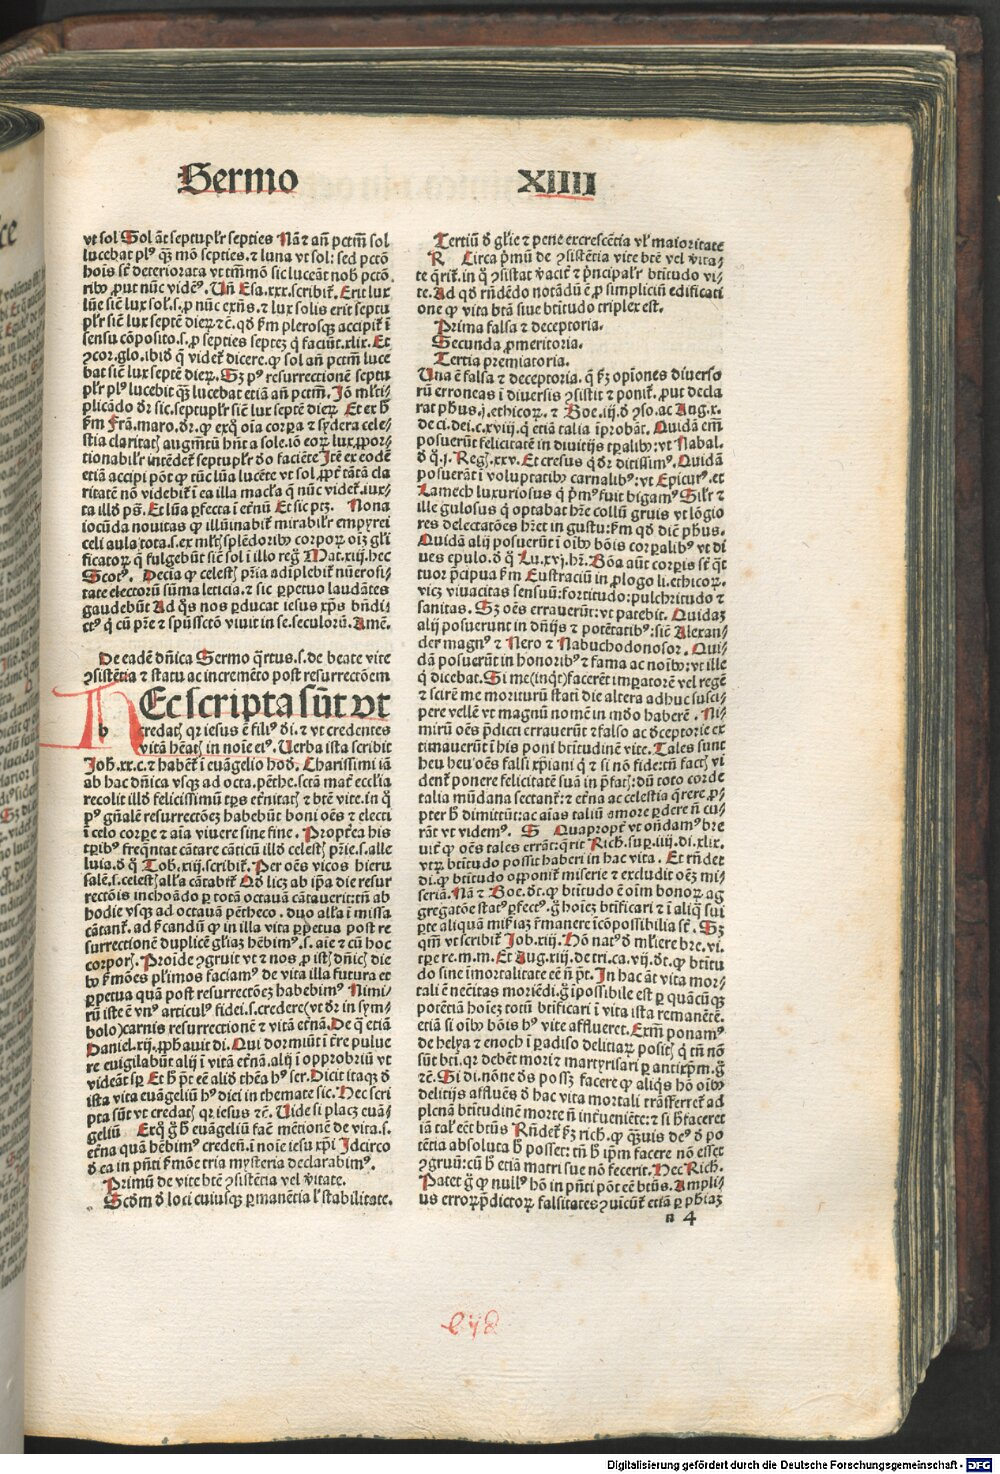 Sermo XIIII
vt sol Sol āt septuplr̄ septies Nā ⁊ añ pctm̄ sol
lucebat plꝰ q̄ꝫ mō septies. ⁊ luna vt sol: sed pctō
hois sc̄ deteriorata vt tm̄mō sic luceāt nob̄ pctō
ribꝰ ꝓut nūc vidēꝰ. Uñ Esa. xxx. scribit̄. Erit lux
lūe sicut̄ lux solꝭ. s. ꝓ nūc exñs. ⁊ lux solis erit septu
plr̄ sicut̄ lux septē dieꝝ ⁊c̄. qd̄ fm̄ plerosqꝫ accipit̄ ī
sensu cōposito. s. ꝓ septies septeꝫ q̄ faciūt. xlix. Et
ꝯcor. glo. ibid̄ q̄ videt̄ dicere. ꝙ sol añ pctm̄ luce
bat sicut̄ lux septē dieꝝ. Sꝫ pꝰ resurrectionē septu
plr̄ plꝰ lucebit qꝫ lucebat etiā añ pctm̄. Jō ml̄ti⸗
plicādo dr̄ sic. septuplr̄ sicut̄ lux septē dieꝝ Et ex h̄
fm̄ Frā. maro. dr̄. ꝙ exq̄ oīa corꝑa ⁊ sydera cele⸗
stia claritatꝭ augm̄tū hn̄t a sole. iō eoꝝ lux ꝓpor⸗
tionabilr̄ intēdet̄ septuplr̄ dō faciēte Itē ex eodē
etiā accipi pōt ꝙ tūc lūa lucēte vt sol. ꝓpt̄ tātā cla
ritatē nō videbit̄ ī ea illa mac̄la q̄ nūc videt̄. iux⸗
ta illd̄ pꝭ. Et lūa ꝑfecta ī et̄nū Et sic ptꝫ. Nona
iocūda nouitas ꝙ illūinabit̄ mirabilr̄ empyrei
celi aula tota. s. ex ml̄tꝭ splēdoribꝰ corpoꝝ oīꝫ gl̄i
ficatoꝝ q̄ fulgebūt sicut̄ sol ī illo reg̃ Mat. xiij. hec
Scotꝰ. Decīa ꝙ celestꝭ pr̄ia adīplebit̄ nūerosi⸗
tate electorū sūma leticia. ⁊ sic ꝑpetuo laudātes
gaudebūt Ad q̄s nos ꝑducat iesus xp̄s bn̄di⸗
ctꝰ q̄ cū pr̄e ⁊ sp̄uscto viuit in se. seculorū. Amē.
De eadē dn̄ica Sermo q̄rtus. s. de beate vite
ꝯsistētia ⁊ statu ac incremēto post resurrectōem
Ec scripta sūt vt
h
credatꝭ qꝛ iesus ē filiꝰ dī. ⁊ vt credentes
vitā heatꝭ in noīe eiꝰ. Uerba ista scribit
Joh̄. xx. c. ⁊ habet̄ ī euāgelio hod̄. Charissimi iā
ab hac dn̄ica vsqꝫ ad octa. pēthe. sctā mat̄ eccl̄ia
recolit illd̄ felicissimū tꝑs et̄nitatꝭ ⁊ btē vite. in q̄
pꝰ gn̄alē resurrectōeꝫ habebūt boni oēs ⁊ electi
ī celo corꝑe ⁊ aīa viuere sine fine. Propt̄ea his
tꝑibꝰ freq̄ntat cātare cāticū illd̄ celestꝭ pr̄ie. s. alle
luia. d̄ q̄ Tob. xiij. scribit̄. Per oēs vicos hieru
salē. s. celestꝭ all̄a cātabit̄ Qd̄ licꝫ ab ip̄a die resur
rectōis inchoādo ꝑ totā octauā cātauerit: tn̄ ab
hodie vsqꝫ ad octauā pētheco. duo all̄a ī missa
cātant̄. ad fm̄candū ꝙ in illa vita ꝑpetua post re
surrectionē duplicē gl̄iaꝫ hēbimꝰ. s. aīe ⁊ cū hoc
corporꝭ. Proīde ꝯgruit vt ⁊ nos ꝓ istꝭ dn̄icꝭ die
bꝰ fmōes pl̄imos faciamꝰ de vita illa futura et
ꝑpetua quā post resurrectōeꝫ habebimꝰ Nimi⸗
rū iste ē vnꝰ articulꝰ fidei. s. credere (vt dr̄ in sym⸗
bolo) carnis resurrectionē ⁊ vitā et̄nā. De q̄ etiā
Daniel. xij. ꝓph̄auit dī. Qui dormiūt ī t̄re puluere
re euigilabūt alij ī vitā et̄nā. alij ī opprobriū vt
videāt sꝑ Et h̄ pt̄ eē aliđ thēa hꝰ ser. Dicit itaqꝫ d̄
ista vita euāgeliū hꝰ diei in themate sic. Hec scri
pta sūt vt credatꝭ qꝛ iesus ⁊c̄. Uide si placꝫ euā⸗
geliū Etq̄ g̃ h̄ euāgeliū facit̄ mētionē de vita. s.
et̄na quā hēbimꝰ credent̄. ī noīe iesu xp̄i Jdcirco
d̄ ea in pn̄ti fmōe tria mysteria declarabimꝰ.
Primū de vite btē ꝯsistētia vel v̄itate.
Scdm̄ d̄ loci cuiusqꝫ ꝑmanētia ꝉ stabilitate.
Tertiū d̄ gl̄ie ⁊ pene excrescētia vꝉ maioritate
R Circa pm̄ū de ꝯsistētia vite btē vel v̄ita⸗
te q̄rit̄. in q̄ ꝯsistat v̄acit̄ ⁊ pn̄cipalr̄ btitudo vi⸗
te. Ad qd̄ rn̄dēdo notādū ē ꝓ simpliciū edificati
one ꝙ vita btā siue btitudo triplex est.
Prima falsa ⁊ deceptoria.
Secunda ꝓmeritoria.
Tertia premiatoria.
Una ē falsa ⁊ deceptoria. q̄ fꝫ opīones diuerso
rū erroneas ī diuersis ꝯsistit ⁊ ponit̄. ꝓut decla
rat ph̄us. j. ethicoꝝ. ⁊ Boe. iij. d̄ ꝯso. ac Aug. x.
de ci. dei. c. xviij. q̄ etiā talia īprobāt. Quidā em̄
posuerūt felicitatē in diuitijs tꝑalibꝰ: vt Nabal.
d̄ q̄. j. Regꝭ. xxv. Et cresus q̄ dr̄ ditissimꝰ. Quidā
posuerāt ī voluptatibꝰ carnalibꝰ: vt Epicurꝰ. et
Lamech luxuriosus q̄ pm̄ꝰ fuit bigamꝰ Silr̄ ⁊
ille gulosus q̄ optabat hr̄e collū gruis vt lōgio
res delectatōes hr̄et in gustu: fm̄ qd̄ dic̄ ph̄us.
Quidā alij posuerūt ī oībꝰ bōis corꝑalibꝰ vt di
ues epulo. d̄ q̄ Lu. xvj. hr̄. Bōa aūt corꝑis st̄ q̄t
tuor pn̄cipua fm̄ Eustraciū in ꝓlogo li. ethicoꝝ.
vicꝫ viuacitas sensuū: fortitudo: pulchritudo ⁊
sanitas. Sꝫ oēs errauerūt: vt patebit. Quidaꝫ
alij posuerunt in dn̄ijs ⁊ potētatibꝰ: sicut̄ Alexan⸗
der magnꝰ ⁊ Nero ⁊ Nabuchodonosor. Qui⸗
dā posuerūt in honoribꝰ ⁊ fama ac noībꝰ: vt ille
q̄ dicebat. Si me (inq̄t) facerēt imꝑatorē vel regē
⁊ scirē me moriturū statī die altera adhuc susci⸗
pere vellē vt magnū nomē in mūdo haberē. Ni⸗
mirū oēs pdicti errauerūt ⁊ falso ac d̄ceptorie ex
timauerūt ī his poni btitudinē vite. Tales sunt
heu heu oēs falsi xp̄iani q̄ ⁊ si nō fide: tn̄ factꝭ vi
dent̄ ponere felicitatē suā in pfatꝭ: dū toto corde
talia mūdana sectant̄: ⁊ et̄na ac celestia q̄rere ꝓ⸗
pter h̄ dimittūt: ac aīas taliū amore ꝑdere ñ cu⸗
rāt vt videmꝰ. S Quapropt̄ vt on̄damꝰ bre
uit̄ ꝙ oēs tales errāt: q̄rit Rich. suꝑ. iiij. di. xlix.
vtꝝ btitudo possit haberi in hac vita. Et rn̄det
di. ꝙ btitudo opponit̄ miserie ⁊ excludit oēꝫ mi⸗
seriā. Nā ⁊ Boe. dt̄. ꝙ btitudo ē oīm bonoꝝ ag
gregatōe statꝰ ꝑfectꝰ. g̃ hoīeꝫ btificari ⁊ ī aliq̄ sui
ꝑte aliquā misiaꝫ r̄manere īcōpossibilia st̄. Sꝫ
qm̄ vt scribit̄ Job. xiij. Hō natꝰ d̄ mliere bre. vi.
tꝑe re. m. m. Et Aug. xiij. de tri. ca. vij. dt̄. ꝙ btitu
do sine īmortalitate eē ñ pt̄. In hac āt vita mor⸗
tali ē necitas moriēdi. g̃ īpossibile est ꝑ quācūqꝫ
potētiā hoīeꝫ totū btificari ī vita ista remanētē.
etiā si oībꝰ bōis hꝰ vite afflueret. Exm̄ ponamꝰ
de helya ⁊ enoch ī ꝑadiso delitiaꝝ positꝭ q̄ tn̄ nō
sūt bti. qꝛ debēt mori ⁊ martyrisari ꝑ antixpm̄. g̃
⁊c̄. Si di. nōne ds possꝫ facere ꝙ aliq̄s hō oībꝰ
delitijs affluēs d̄ hac vita mortali trāsferret̄ ad
plenā btitudinē morte ñ int̄ueniēte: ⁊ si h̄ faceret
iā tal̄ eēt btūs Rn̄det̄ fꝫ rich. ꝙ qꝫuis deꝰ d̄ po
tētia absoluta h̄ posset: tn̄ h̄ ip̄m facere nō esset
ꝯgruū: cū h̄ etiā matri sue nō fecerit. Hec Rich.
Patet g̃ ꝙ nullꝰ hō in pn̄ti pōt eē btūs. Ampli⸗
us erroꝝ pdictoꝝ falsitates ꝯuicūt̄ etiā ꝑ ph̄iaꝫ
n 4
Digitalisierung gefördert durch die Deutsche Forschungsgemeinschaft - DFG